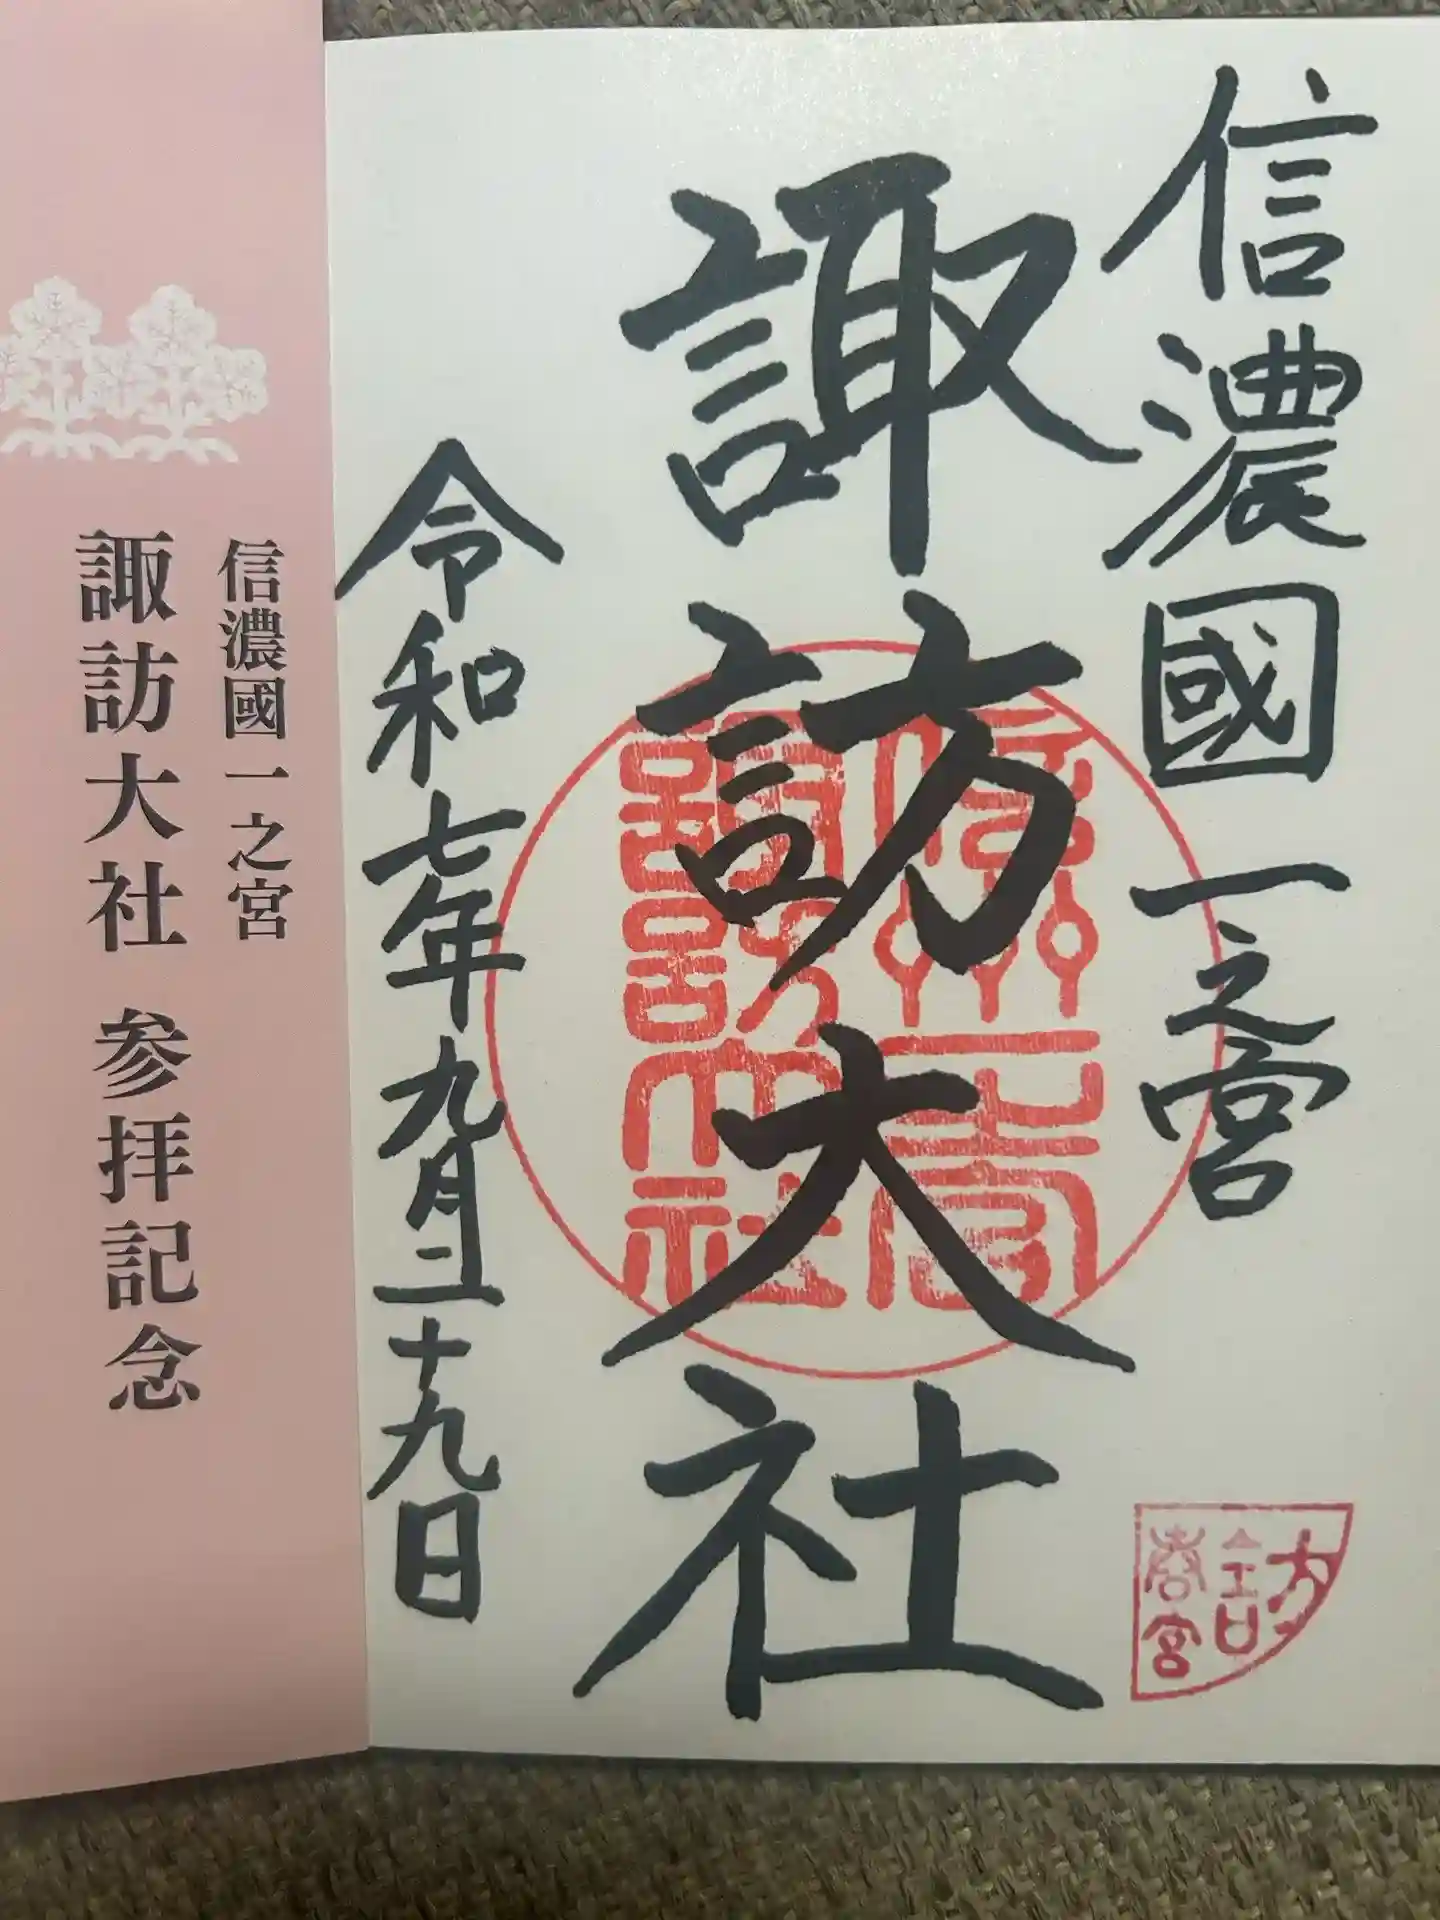 信濃國一之宮
諏訪大社
令和七年九月二十九日
信州一之宮
諏訪大社
諏訪
春宮
信濃國一之宮
諏訪大社 参拝記念